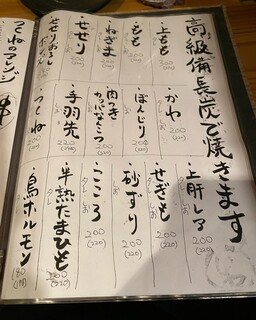 高級備長炭で焼きます
・上もも
200
(220)
・もも
200
(220)
・ねぎま
200
(220)
・せせり
200
(220)
・せせりおろしポン
・かわ
200
・ぼんじり
200
(220)
・肉つきカッパなんこつ
200
・手羽先
220
・つくね
200
・上肝レア
200
(220)
・せぎも
200
(220)
・砂ずり
200
(220)
・こころ
200
(220)
・半熟たまひも
(220)
・鳥ホルモン
180
つくねのアレンジ